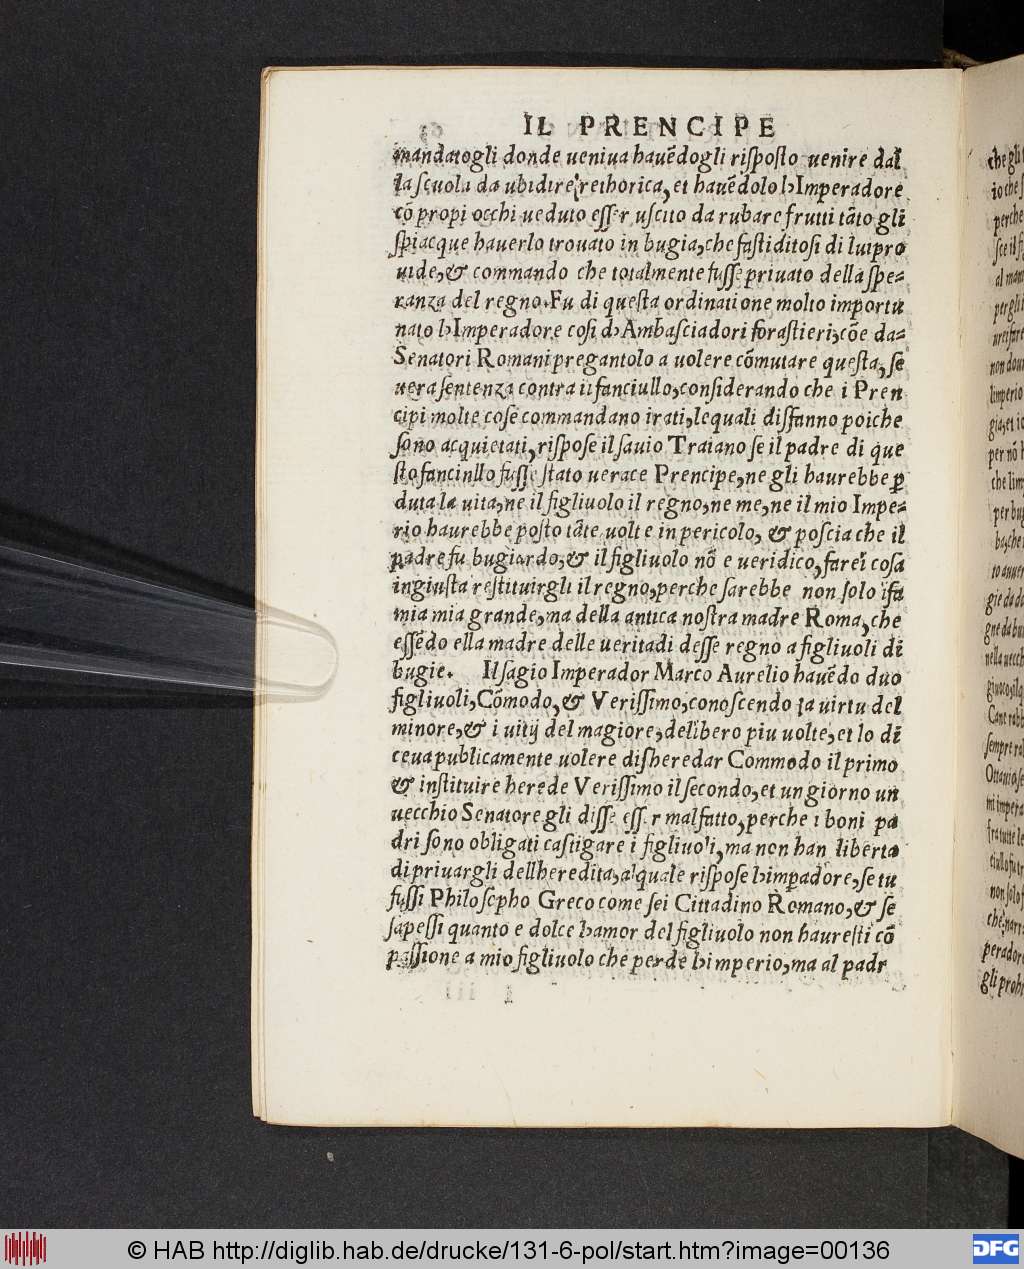 IL PRENCIPE
mandatogli donde veniua havēdogli risposto venire dal
la scuola da ubidire rethorica, et havēdolo l'Imperadore
cō propi occhi ueduto esser uscito da rubare frutti tāto gli
spiacque hauerlo trouato in bugia, che fastiditosi di lui pro
uide, & commando che totalmente fusse priuato della spe=
ranza del regno. Fu di questa ordinatione molto importu
nato l'Imperadore cosi d'Ambasciadori forastieri, cōe da=
Senatori Romani pregantolo a uolere cōmutare questa, se
uera sentenza contra il fanciullo, considerando che i Pren
cipi molte cose commandano irati, lequali disfanno poiche
sono acquietati, rispose il sauio Traiano se il padre di que
sto fancinllo fusse stato uerace Prencipe, ne gli haurebbe ꝑ
duta la uita, ne il figliuolo il regno, ne me, ne il mio Impe=
rio haurebbe posto tāte uolte in pericolo, & poscia che il
padre fu bugiardo, & il figliuolo nō e ueridico, farei cosa
ingiusta restituirgli il regno, perche sarebbe non solo īfa
mia mia grande, ma della antica nostra madre Roma, che
essēdo ella madre delle ueritadi desse regno a figliuoli di
bugie. Il sagio Imperador Marco Aurelio havēdo duo
figliuoli, Cōmodo, & Verissimo, conoscendo la uirtu del
minore, & i uitij del magiore, delibero piu uolte, et lo di
ceua publicamente uolere disheredar Commodo il primo
& instituire herede Verissimo il secondo, et un giorno un
uecchio Senatore gli disse esser mal fatto, perche i boni pa
dri sono obligati castigare i figliuoli, ma non han liberta
di priuargli dell heredita, al quale rispose l'imꝑadore, se tu
fussi Philosopho Greco come sei Cittadino Romano, & se
sapessi quanto e dolce l'amor del figliuolo non hauresti cō
passione a mio figliuolo che perde l'imperio, ma al padr
© HAB http://diglib.hab.de/drucke/131-6-pol/start.htm?image=00136
DFG